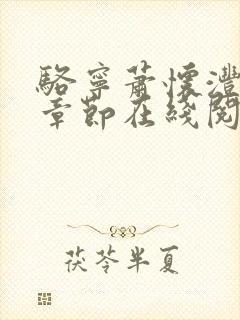 駱寧蕭懷灃
章節在綫閱
茯苓半夏